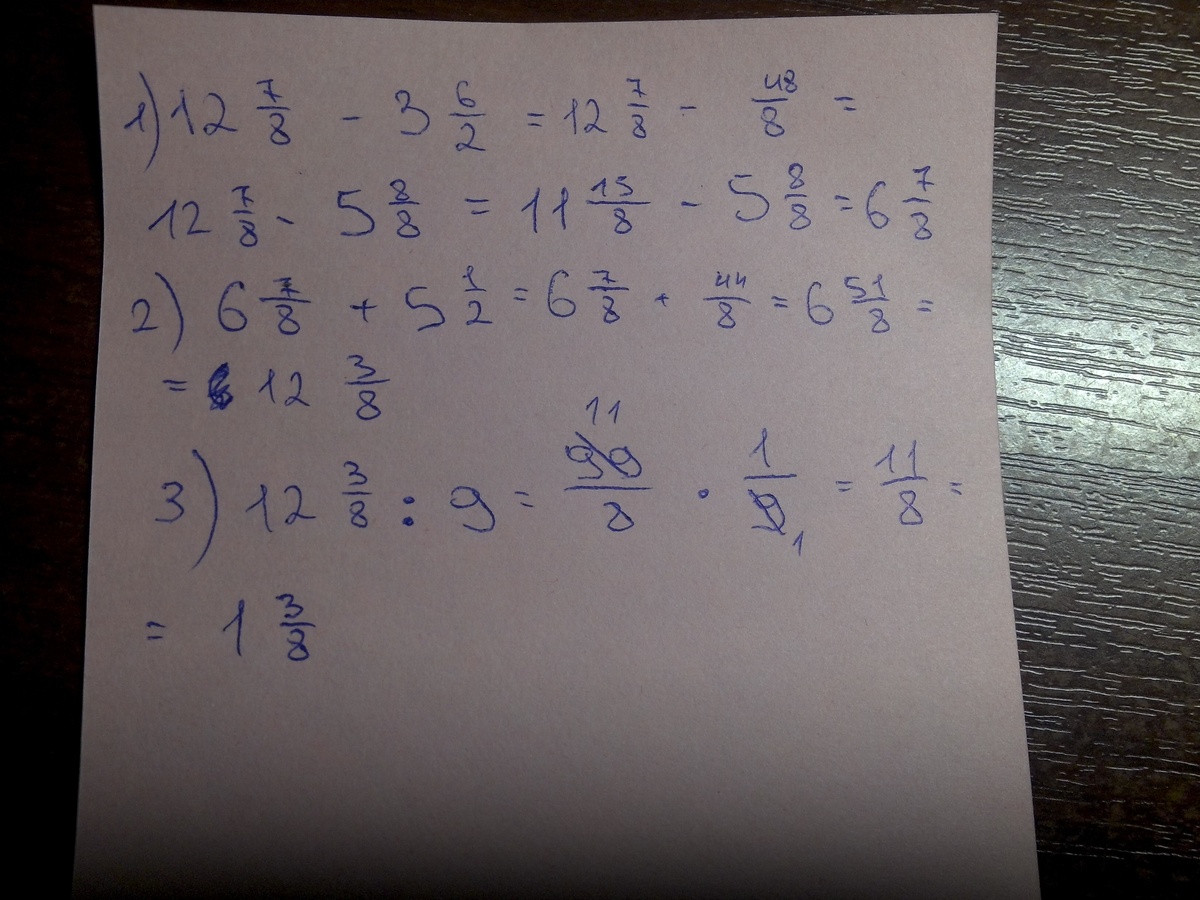 1) 12 7/8 - 3 6/2 = 12 7/8 - 48/8 =
12 7/8 - 5 8/8 = 11 15/8 - 5 8/8 = 6 7/8
2) 6 7/8 + 5 1/2 = 6 7/8 + 44/8 = 6 51/8 =
= 12 3/8
11
3) 12 3/8 : 9 = 99/8 · 1/9 = 11/8 =
1
= 1 3/8